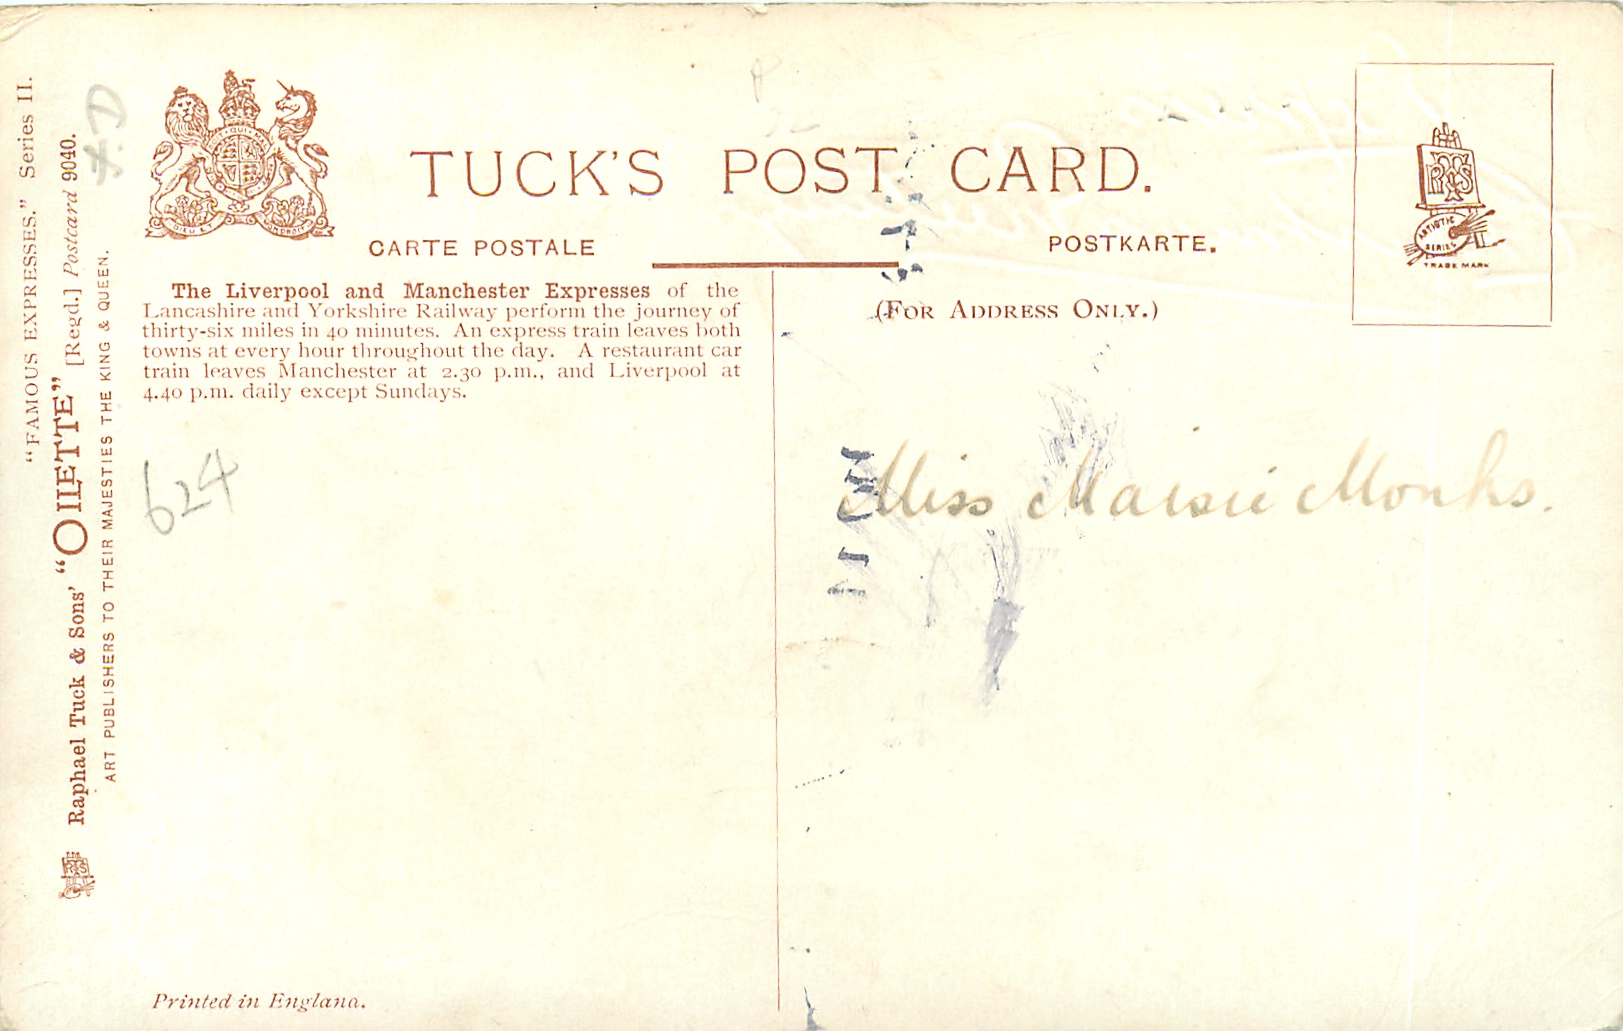 "FAMOUS EXPRESSES." Series II.
Raphael Tuck & Sons' "OILETTE" [Regd.] Postcard 9040.
ART PUBLISHERS TO THEIR MAJESTIES THE KING & QUEEN.
RTS
TUCK'S POST CARD.
CARTE POSTALE
POSTKARTE.
DIEU ET
MON DROIT
The Liverpool and Manchester Expresses of the
Lancashire and Yorkshire Railway perform the journey of
thirty-six miles in 40 minutes. An express train leaves both
towns at every hour throughout the day. A restaurant car
train leaves Manchester at 2.30 p.m., and Liverpool at
4.40 p.m. daily except Sundays.
624
(FOR ADDRESS ONLY.)
RTS
ARTISTIC
SERIES
TRADE MARK
Miss Maisie Monks.
Printed in England.